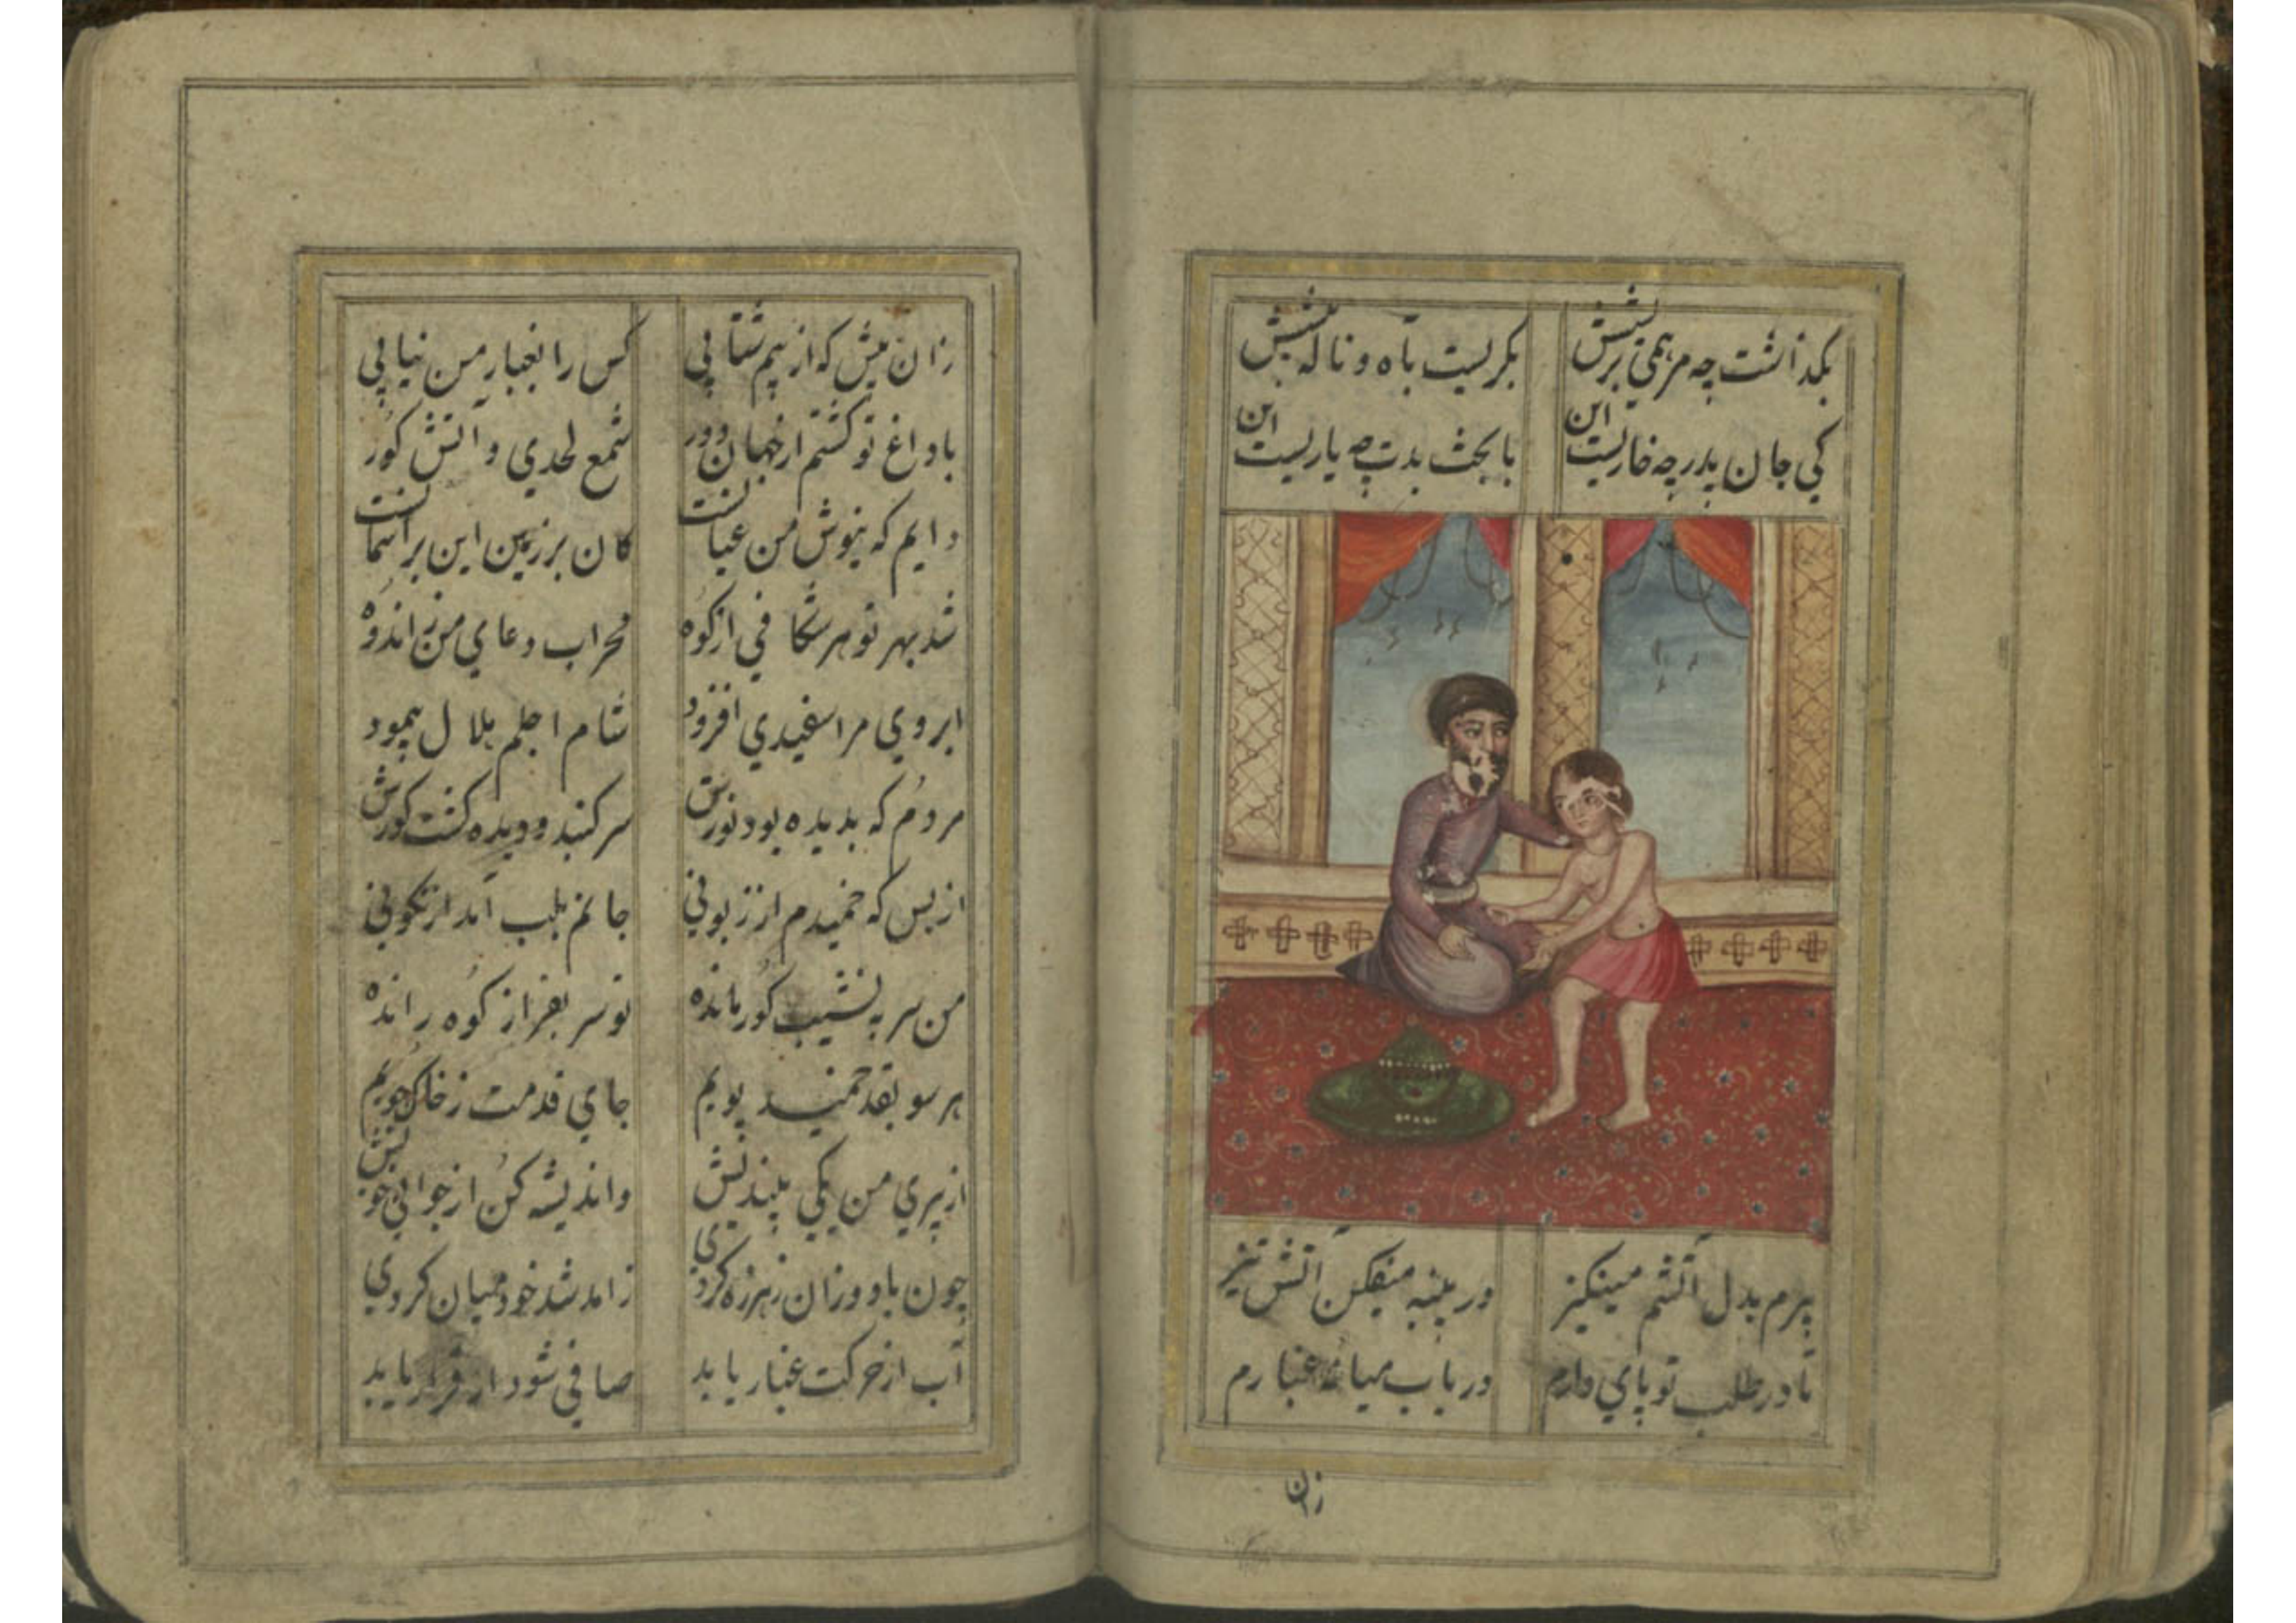 بگذاشت چه مرهمی بریشش
بگریست بآه و ناله پیشش
کی جان پدر چه خاریست این
با بخت بدت چه یاریست این
پیرم بدل آتشم مینگیز
در پنبه میفکن آتش تیز
تا در طلب تو پای دارم
دریاب میانه غبارم
زان
زان پیش که از پیم شتابی
کس را بغبار من نیابی
با داغ تو گشتم از جهان دور
شمع لحدی و آتش گور
دایم که بنوش من عیانست
کان بر زمین این بر آسمانست
شد بهر تو هر شکافی از کوه
محراب دعای من ز اندوه
ابروی مرا سفیدی افزود
شام اجلم هلال بنمود
مردم که بدیده بود نورش
سر کند و دیده گشت گورش
از بس که خمیدم از زبونی
جانم بلب آمد از نگونی
من سر به نشیب گور مانده
تو سر بفراز کوه رانده
هر سو بقد خمیده پویم
جای قدمت ز خاک جویم
از پیری من یکی بیندیش
و اندیشه کن از جوانی خویش
چون باد وزان ز هرزه گردی
زامد شد خود میان کردی
آب از حرکت غبار یابد
صافی شود ار قرار یابد